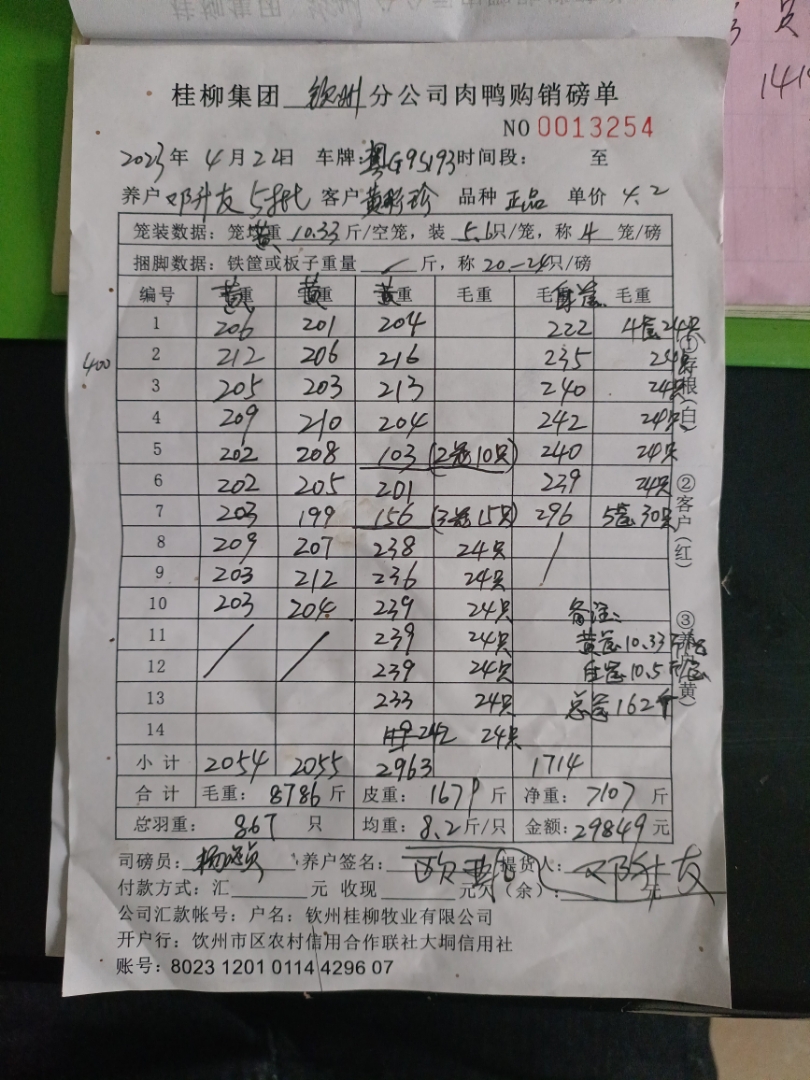 桂柳集团 钦州 分公司肉鸭购销磅单
NO 0013254
2023年 4月22日 车牌：粤G95193 时间段： 至
养户 邓升友 5批 客户 黄彩珍 品种 正品 单价 4.2
笼装数据：笼 重 10.33 斤/空笼，装 5.6只/笼，称 4 笼/磅
捆脚数据：铁筐或板子重量 / 斤，称 20-24只/磅
编号 黄重 黄重 黄重 毛重 毛重 毛重
1 206 201 204 222 4笼24只
400 2 212 206 216 235 24只
3 205 203 213 240 24只
4 209 210 204 242 24只
5 202 208 103 (2笼10只) 240 24只
6 202 205 201 239 24只
7 203 199 156 (3笼15只) 296 5笼30只
8 209 207 238 24只 /
9 203 212 236 24只
10 203 204 239 24只 备注：
11 / / 239 24只 黄笼10.33斤
12 239 24只 笼10.5斤
13 233 24只 总笼162个
14 242 24只
小计 2054 2055 2963 1714
合计 毛重：8786 斤 皮重：1679 斤 净重：7107 斤
总羽重： 867 只 均重：8.2斤/只 金额：29849元
司磅员： 养户签名： 提货人： 邓升友
付款方式：汇 元 收现 元欠（余）： 元
公司汇款帐号：户名：钦州桂柳牧业有限公司
开户行：饮州市区农村信用合作联社大垌信用社
账号：8023 1201 0114 4296 07
①存根(白)
②客户(红)
③养户(黄)
1419
只